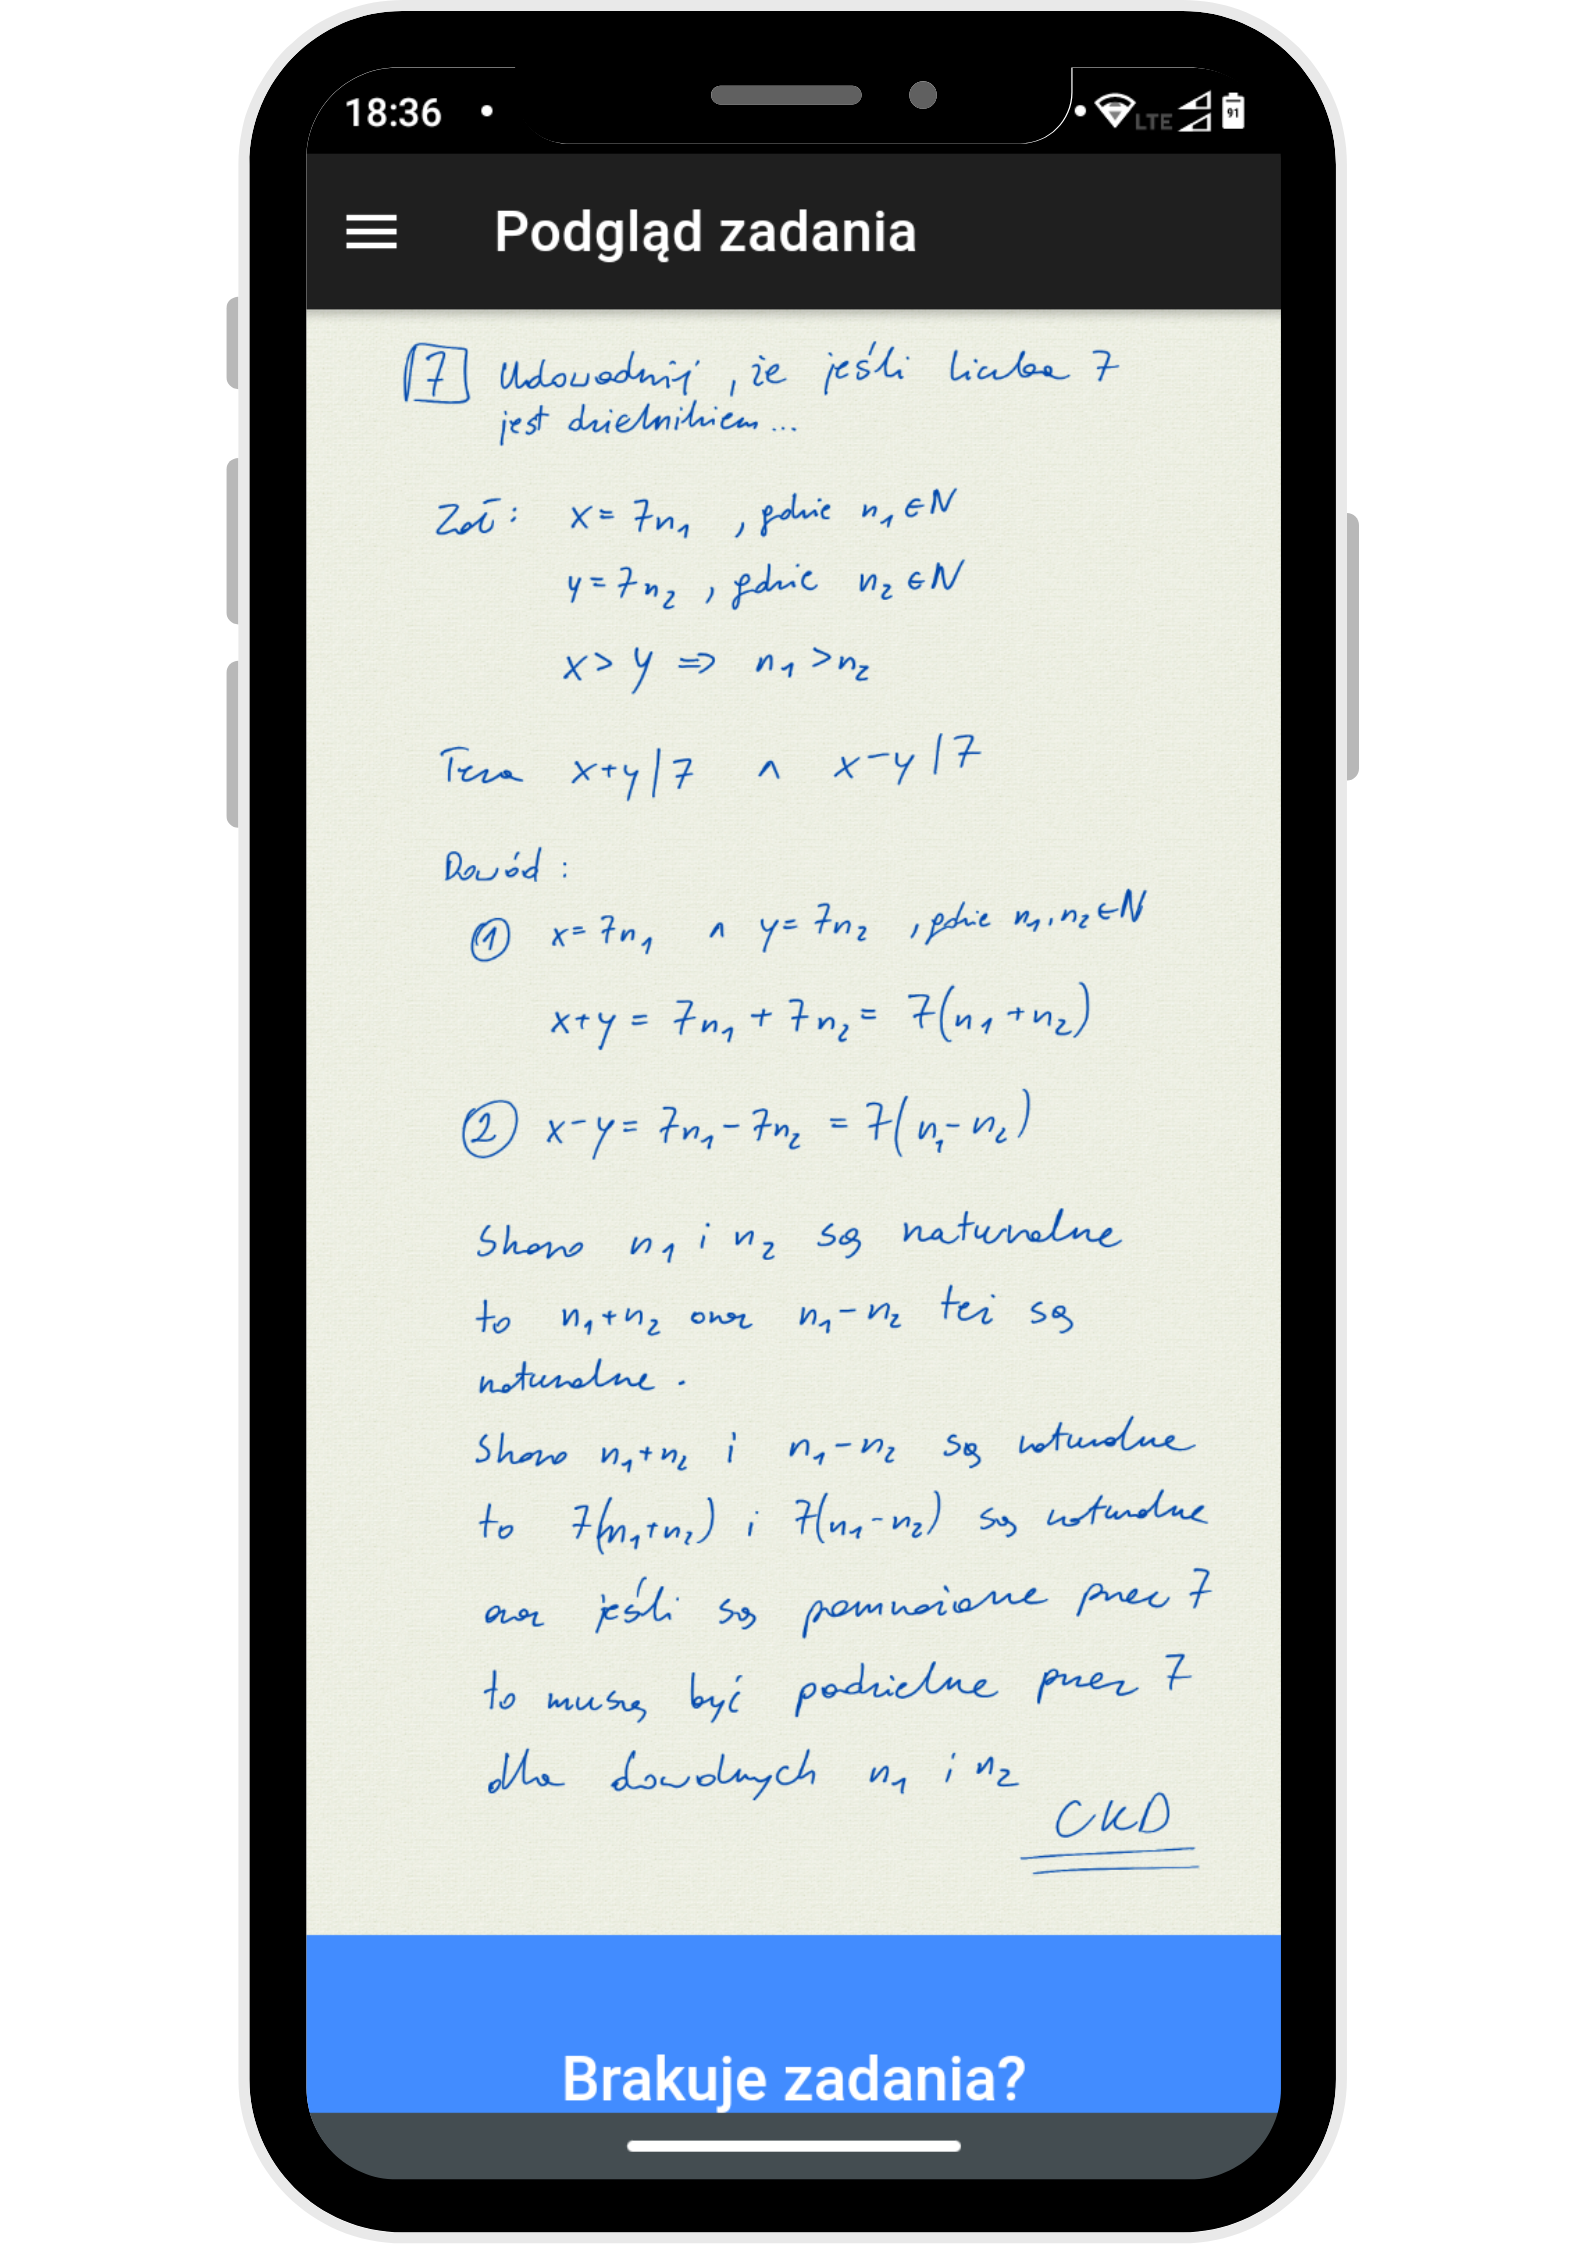 18:36
LTE
91
Podgląd zadania
7 Udowodnij, że jeśli liczba 7
jest dzielnikiem...
Zał: x = 7n₁, gdzie n₁ ∈ N
y = 7n₂, gdzie n₂ ∈ N
x > y ⇒ n₁ > n₂
Teza x+y|7 ∧ x-y|7
Dowód:
① x = 7n₁ ∧ y = 7n₂, gdzie n₁, n₂ ∈ N
x+y = 7n₁ + 7n₂ = 7(n₁ + n₂)
② x-y = 7n₁ - 7n₂ = 7(n₁ - n₂)
Skoro n₁ i n₂ są naturalne
to n₁+n₂ oraz n₁-n₂ też są
naturalne.
Skoro n₁+n₂ i n₁-n₂ są naturalne
to 7(n₁+n₂) i 7(n₁-n₂) są naturalne
oraz jeśli są pomnożone przez 7
to muszą być podzielne przez 7
dla dowolnych n₁ i n₂
CKD
Brakuje zadania?